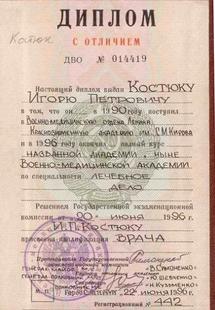 ДИПЛОМ
С ОТЛИЧИЕМ
ДВО № 014419
Настоящий диплом выдан КОСТЮКУ
ИГОРЮ ПЕТРОВИЧУ
в том, что он в 1990 году поступил
в ВОЕННО-МЕДИЦИНСКУЮ ОРДЕНА ЛЕНИНА
КРАСНОЗНАМЕННУЮ АКАДЕМИЮ ИМ. С.М.КИРОВА
и в 1996 году окончил полный курс
НАЗВАННОЙ АКАДЕМИИ, НЫНЕ
ВОЕННО-МЕДИЦИНСКОЙ АКАДЕМИИ
по специальности ЛЕЧЕБНОЕ
ДЕЛО
Решением Государственной экзаменационной
комиссии от 20 ИЮНЯ 1996 г.
И.П.КОСТЮКУ
присвоена квалификация ВРАЧА
Председатель Государственной
экзаменационной комиссии
22 ИЮНЯ 1996 г.
Регистрационный № 442